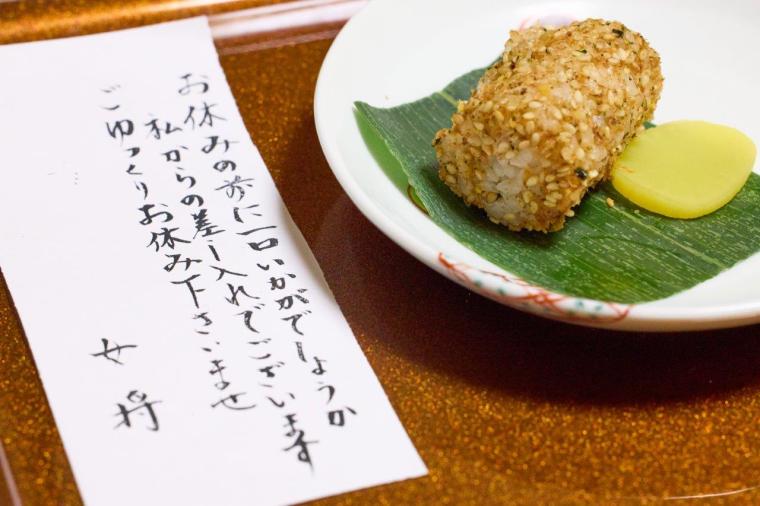 お休みの前に一口いかがでしょうか
私からの差し入れでございます
ごゆっくりお休み下さいませ
女将